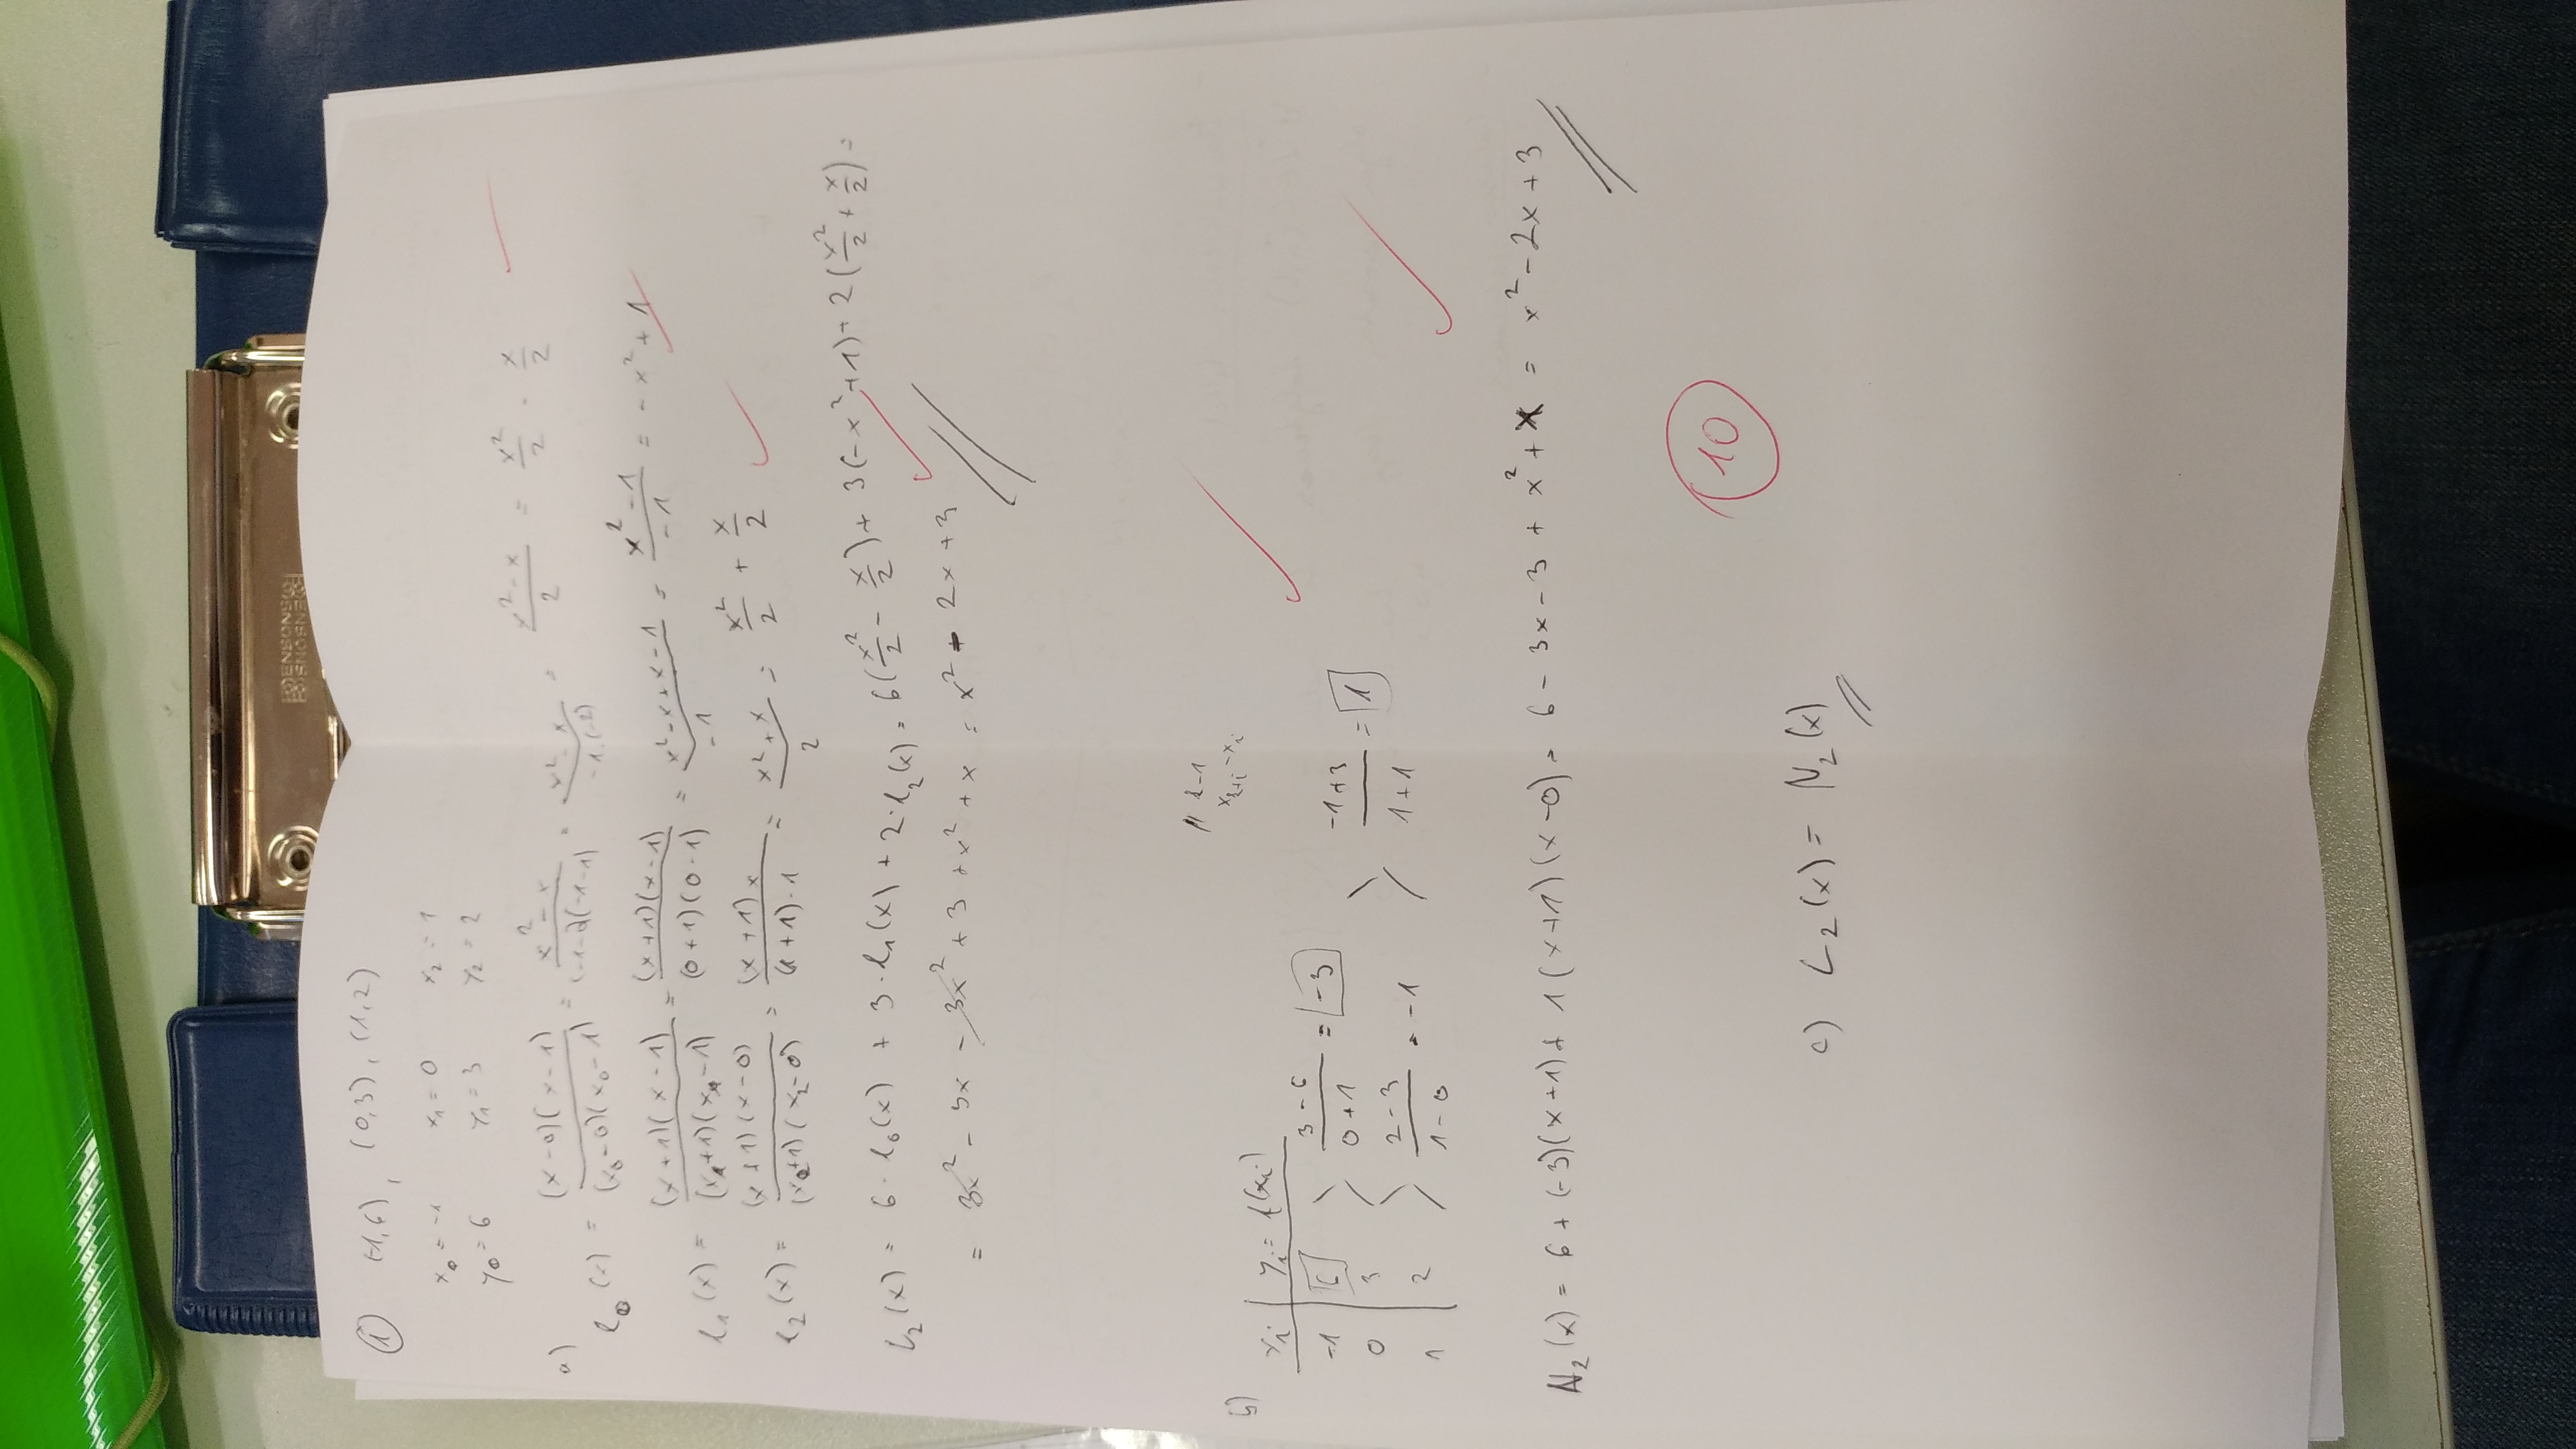 ENSONS
① (-1,6), (0,3), (1,2)
x₀ = -1 x₁ = 0 x₂ = 1
y₀ = 6 y₁ = 3 y₂ = 2
a) l₀(x) = (x-0)(x-1)/(x₀-0)(x₀-1) = x²-x/(-1-0)(-1-1) = x²-x/-1·(-2) = x²-x/2 = x²/2 - x/2
l₁(x) = (x+1)(x-1)/(x₁+1)(x₁-1) = (x+1)(x-1)/(0+1)(0-1) = x²-x+x-1/-1 = x²-1/-1 = -x²+1
l₂(x) = (x+1)(x-0)/(x₂+1)(x₂-0) = (x+1)x/(1+1)·1 = x²+x/2 = x²/2 + x/2
L₂(x) = 6·l₀(x) + 3·l₁(x) + 2·l₂(x) = 6(x²/2 - x/2) + 3(-x²+1) + 2(x²/2 + x/2) =
= 3x² - 3x - 3x² + 3 + x² + x = x² - 2x + 3
b)
xᵢ yᵢ = f(xᵢ)
-1 6 3-6/0+1 = -3
0 3 -1+3/1+1 = 1
1 2 2-3/1-0 = -1
N₂(x) = 6 + (-3)(x+1) + 1(x+1)(x-0) = 6 - 3x - 3 + x² + x = x² - 2x + 3
10
c) L₂(x) = N₂(x)